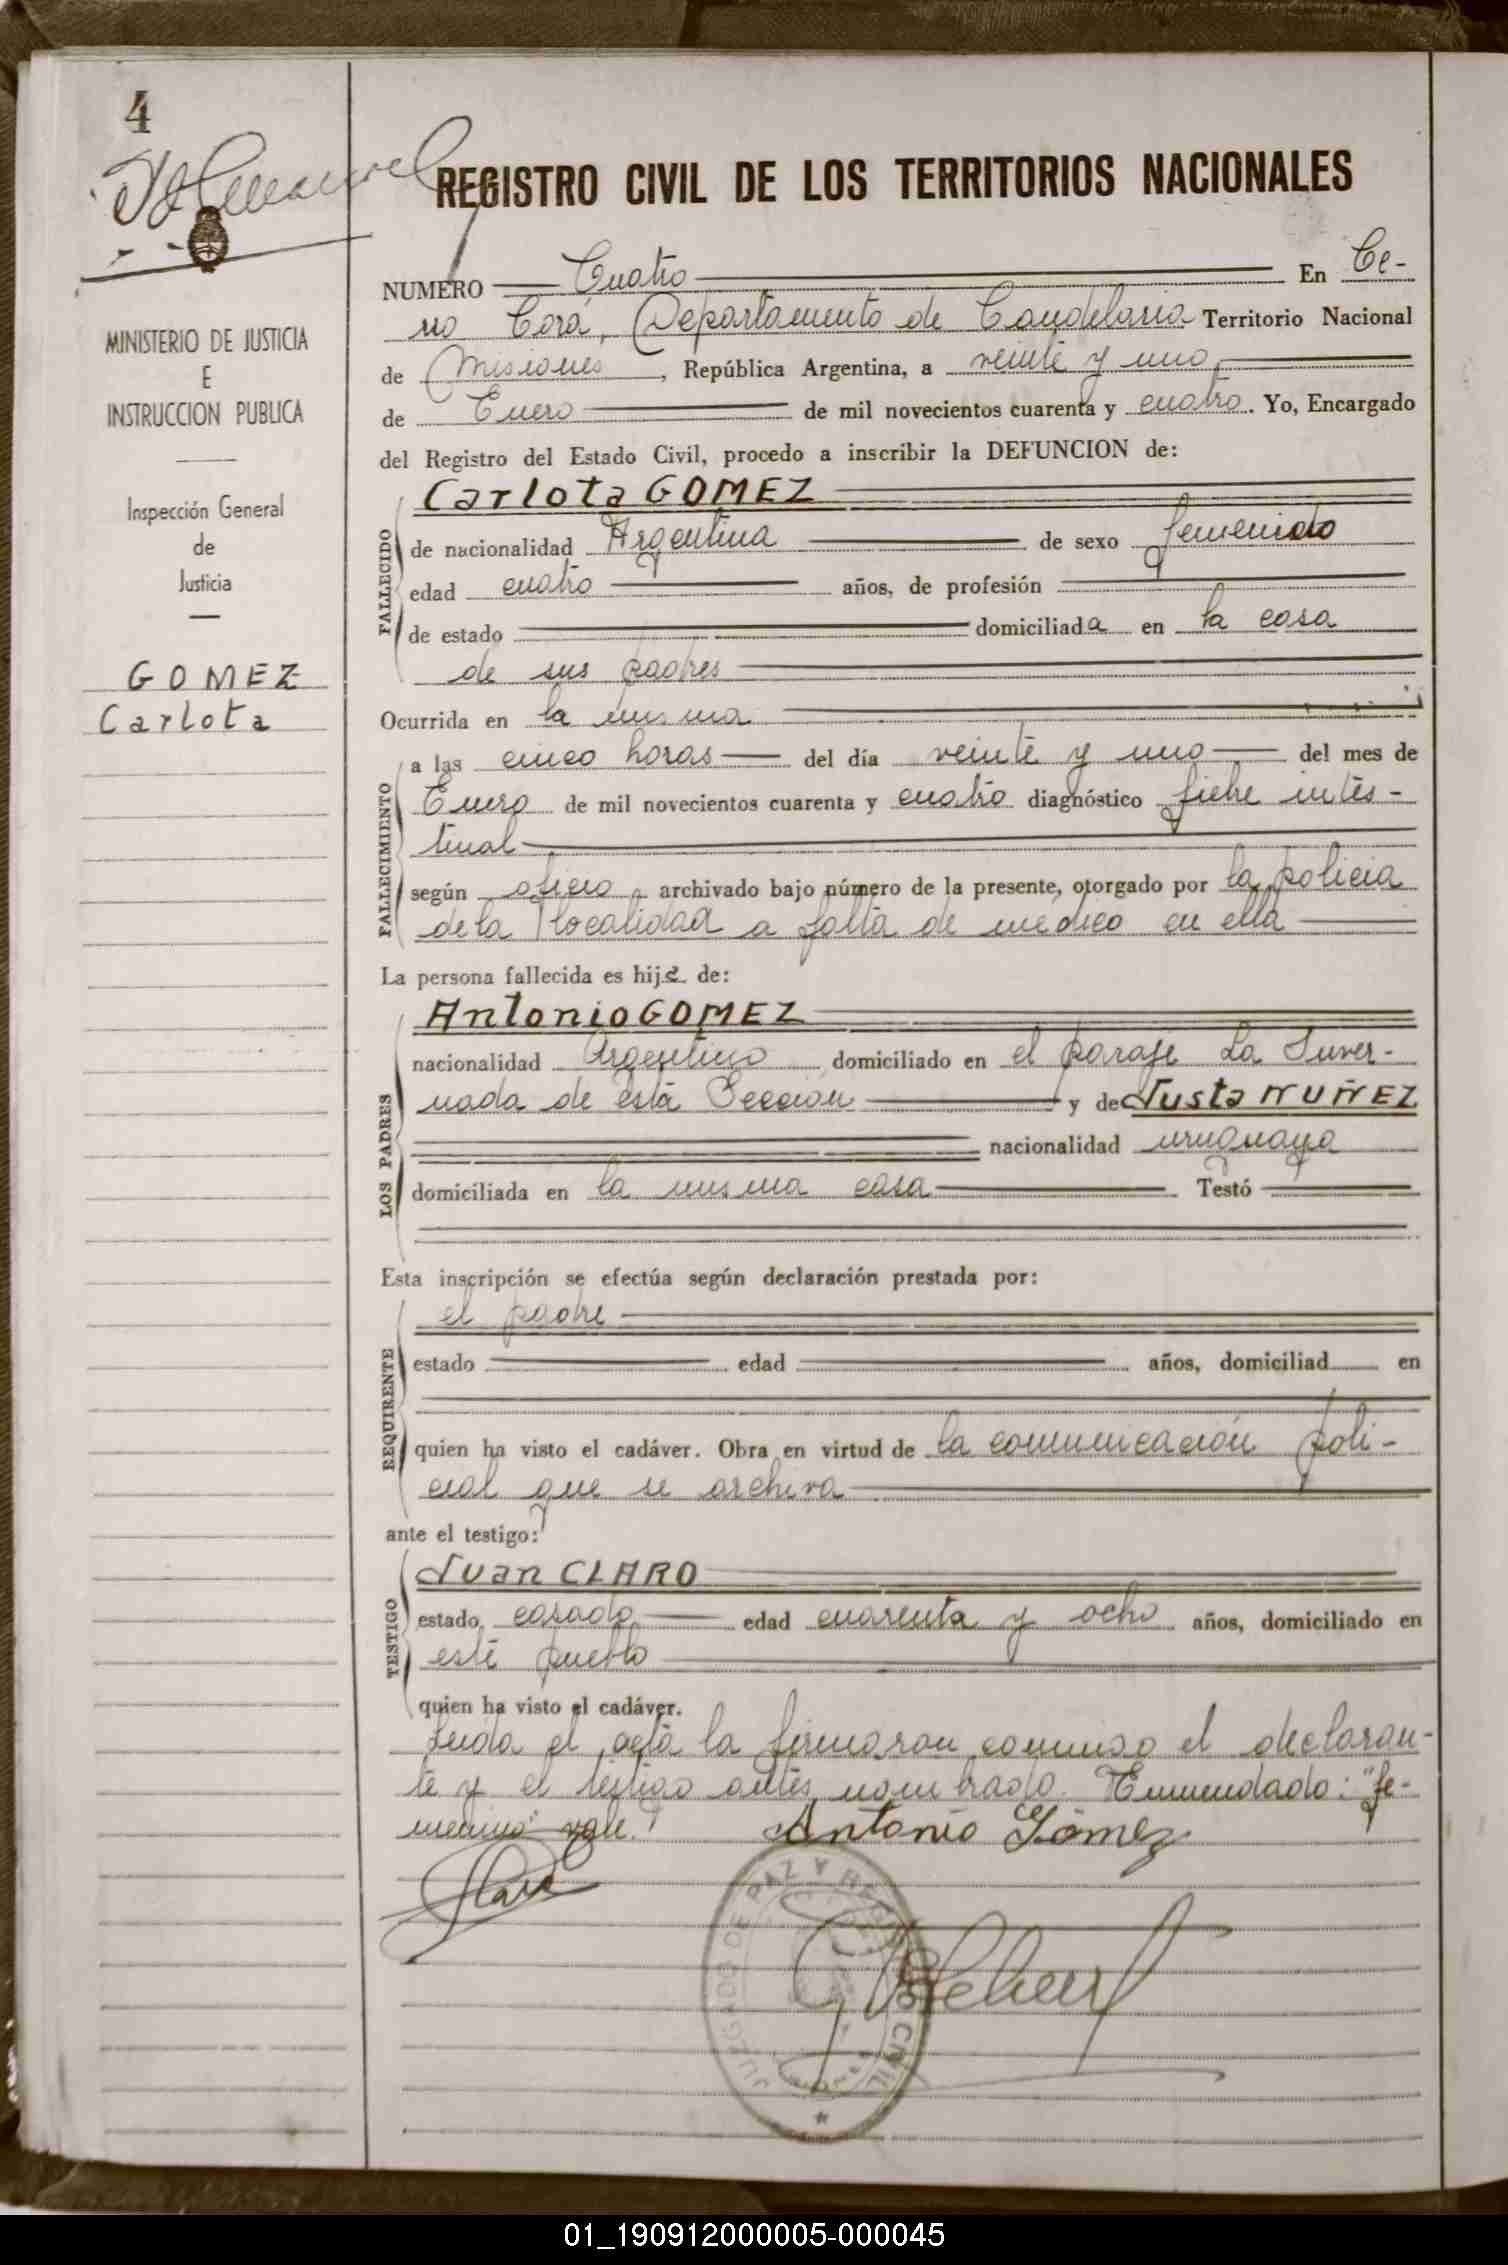 4
REGISTRO CIVIL DE LOS TERRITORIOS NACIONALES
MINISTERIO DE JUSTICIA
E
INSTRUCCION PUBLICA
Inspección General
de
Justicia
GOMEZ
Carlota
NUMERO Cuatro En Ce-
rro Corá, Departamento de Candelaria Territorio Nacional
de Misiones, República Argentina, a veinte y uno
de Enero de mil novecientos cuarenta y cuatro. Yo, Encargado
del Registro del Estado Civil, procedo a inscribir la DEFUNCION de:
Carlota GOMEZ
FALLECIDO
de nacionalidad Argentina de sexo femenino
edad cuatro años, de profesión
de estado domiciliada en la casa
de sus padres
Ocurrida en la misma
FALLECIMIENTO
a las cinco horas del día veinte y uno del mes de
Enero de mil novecientos cuarenta y cuatro diagnóstico fiebre intes-
tinal
según oficio archivado bajo número de la presente, otorgado por la policia
de la localidad a falta de médico en ella
La persona fallecida es hija de:
LOS PADRES
Antonio GOMEZ
nacionalidad Argentino domiciliado en el paraje La Inver-
nada de esta Sección y de Justa NUÑEZ
nacionalidad uruguaya
domiciliada en la misma casa Testó
Esta inscripción se efectúa según declaración prestada por:
REQUIRENTE
el padre
estado edad años, domiciliad en
quien ha visto el cadáver. Obra en virtud de la comunicación poli-
cial que se archiva
ante el testigo:
TESTIGO
Juan CLARO
estado casado edad cuarenta y ocho años, domiciliado en
este pueblo
quien ha visto el cadáver.
Leida el acta la firmaron conmigo el declaran-
te y el testigo antes nombrado. Enmendado: "fe-
menino" vale.
Antonio Gómez
Claro
JUZGADO DE PAZ Y REGISTRO CIVIL
01_190912000005-000045